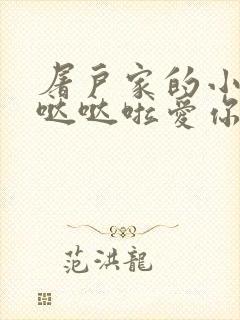 屠戶家的小
哒哒啦爱你
范洪龍